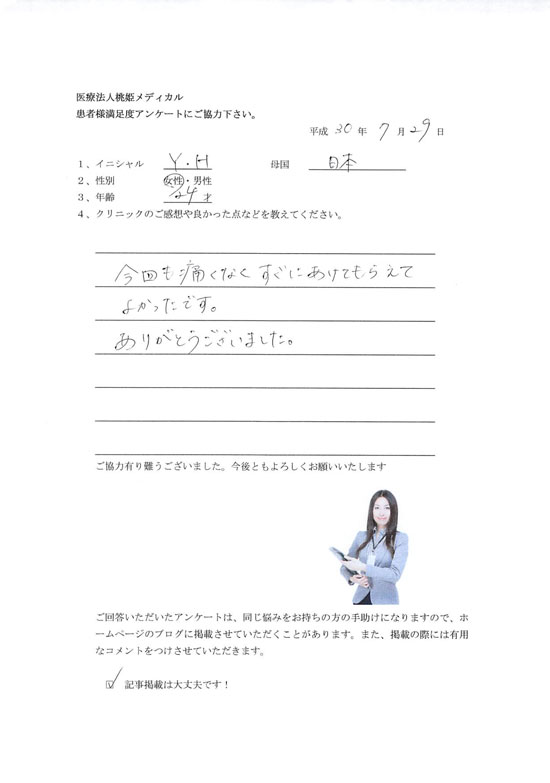 医療法人桃姫メディカル
患者様満足度アンケートにご協力下さい。
平成 30 年 7 月 29 日
1、イニシャル Y・H 母国 日本
2、性別 女性・男性
3、年齢 24 才
4、クリニックのご感想や良かった点などを教えてください。
今回も痛くなくすぐにあけてもらえて
よかったです。
ありがとうございました。
ご協力有り難うございました。今後ともよろしくお願いいたします
ご回答いただいたアンケートは、同じ悩みをお持ちの方の手助けになりますので、ホ
ームページのブログに掲載させていただくことがあります。また、掲載の際には有用
なコメントをつけさせていただきます。
☑ 記事掲載は大丈夫です！